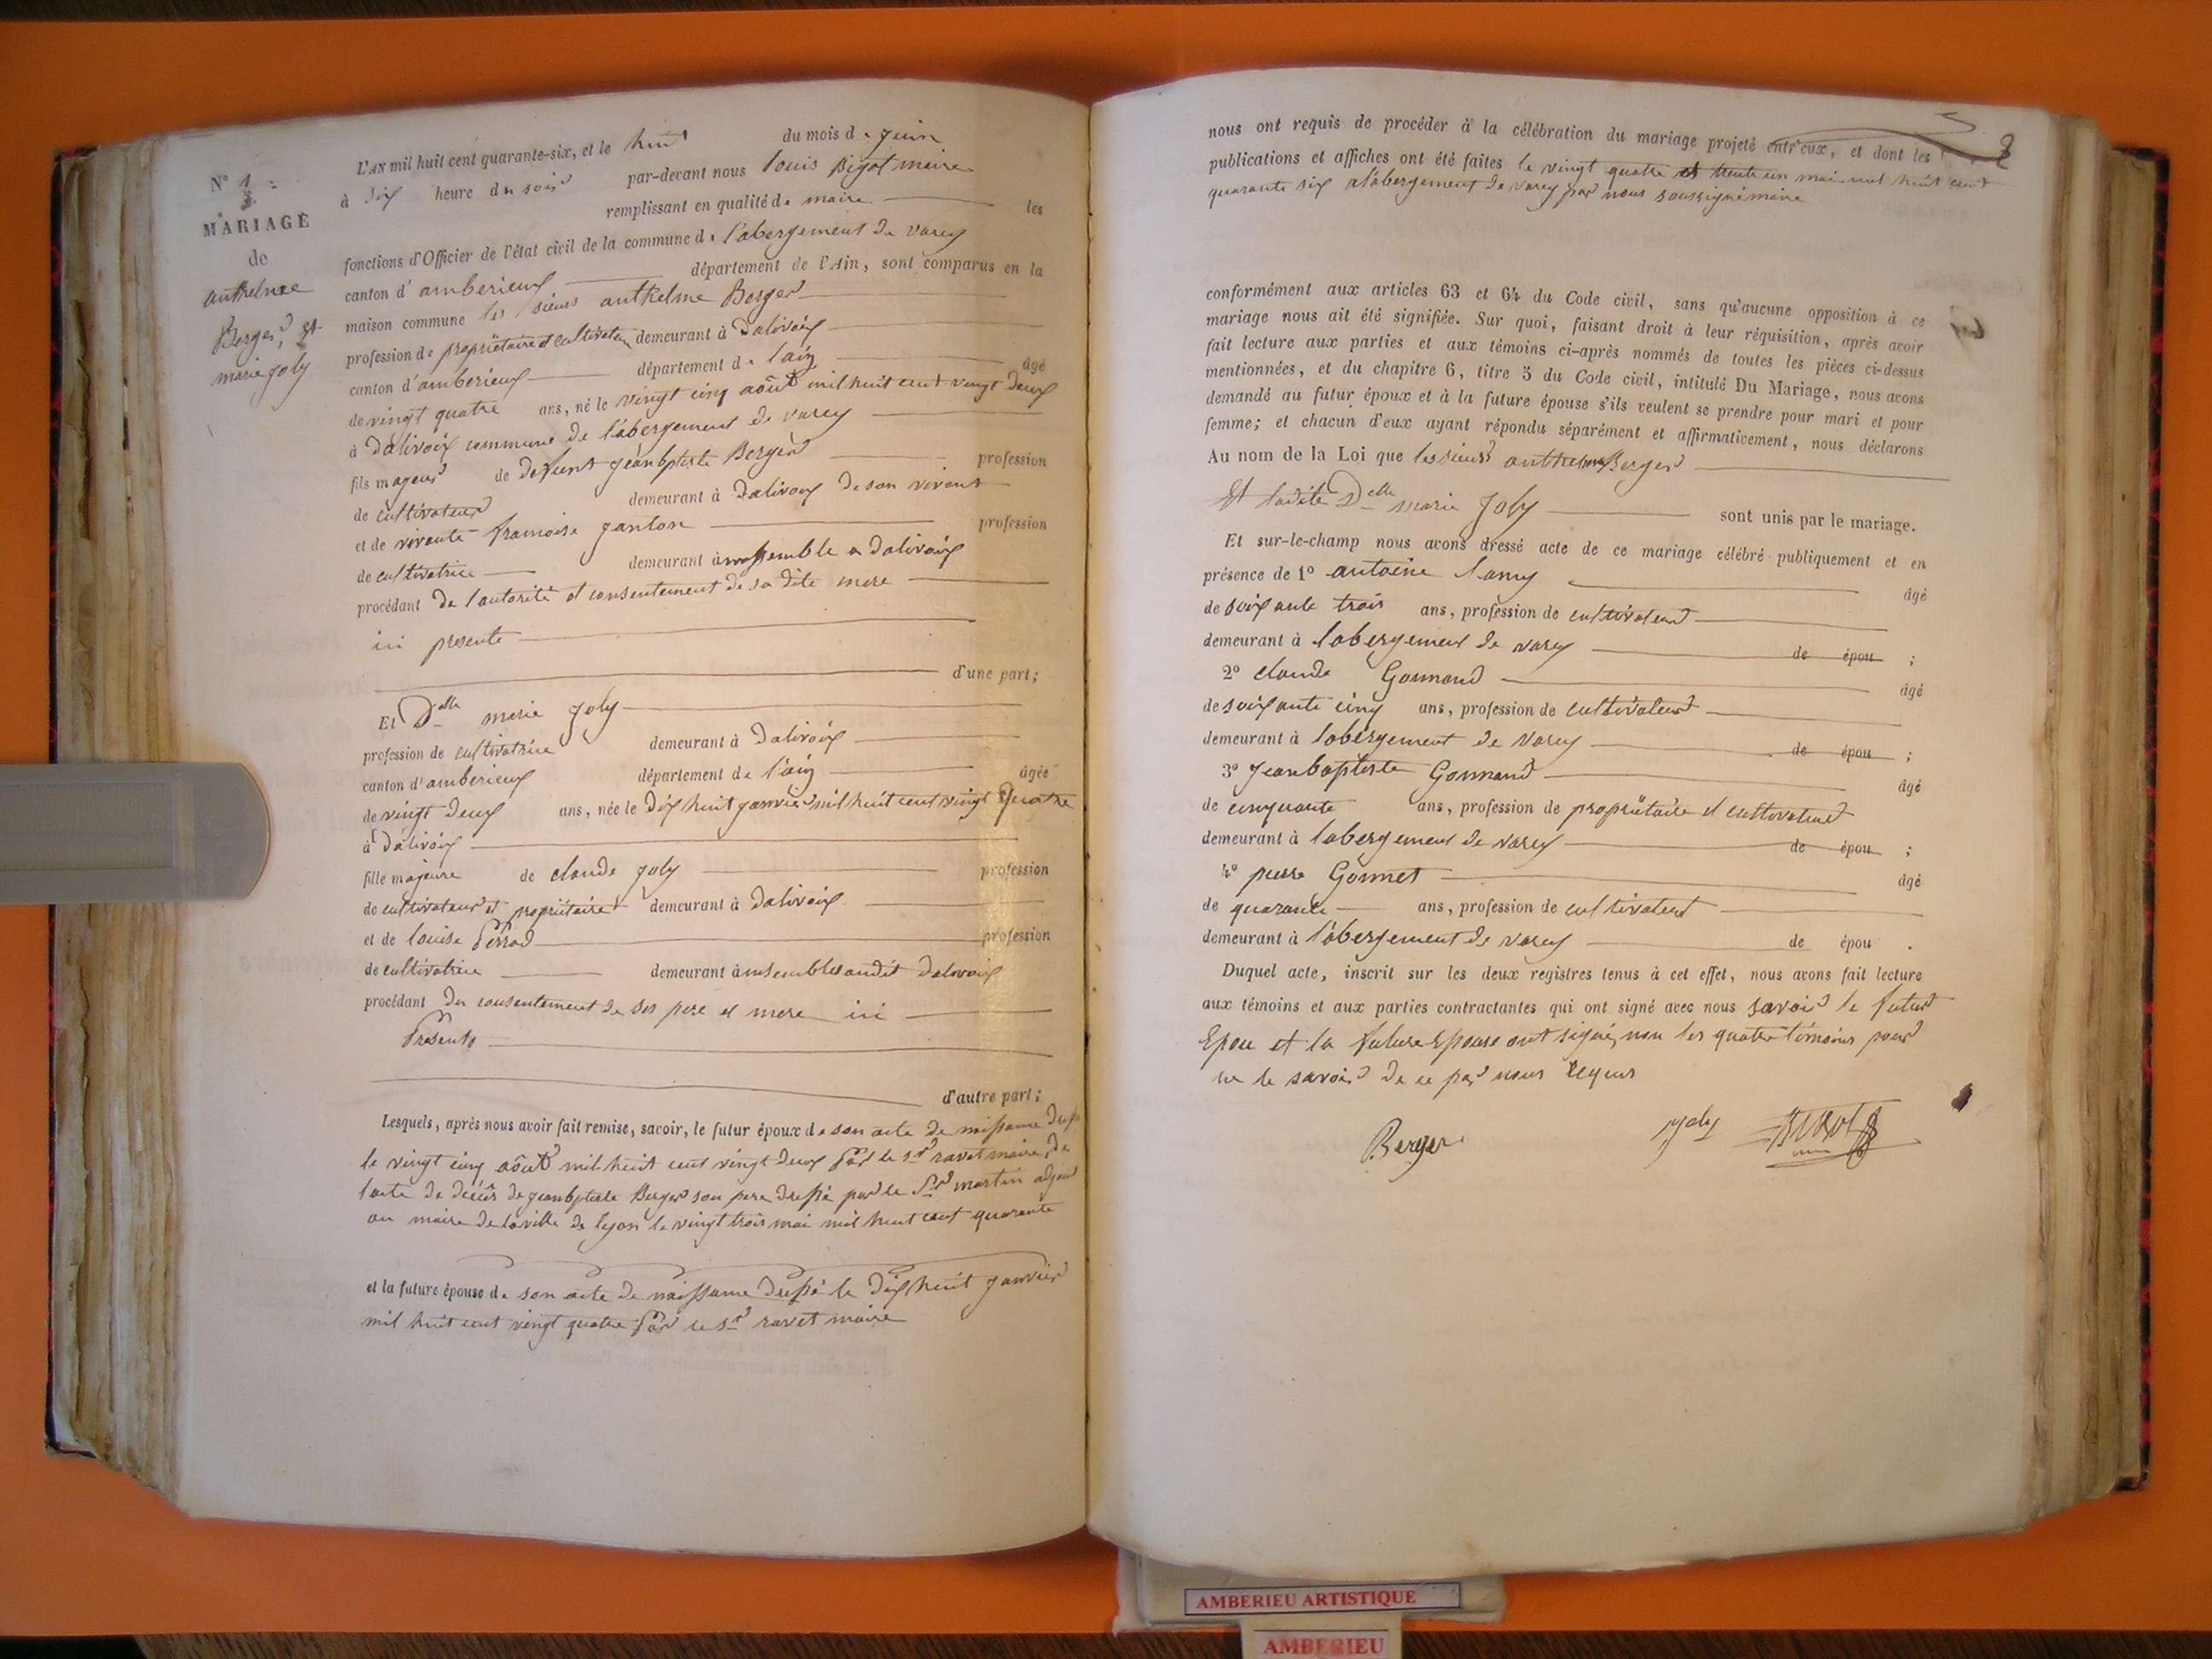 N° 1
MARIAGE
de
anthelme
Berger, et
marie Joly
L'AN mil huit cent quarante-six, et le huit du mois de juin
à dix heure du soir par-devant nous louis Bigot maire
remplissant en qualité de maire les
fonctions d'Officier de l'état civil de la commune de l'abergement de varey
canton d'amberieux département de l'Ain, sont comparus en la
maison commune les sieurs anthelme Berger
profession de propriétaire et cultivateur demeurant à Dalivoix
canton d'amberieux département de l'ain âgé
de vingt quatre ans, né le vingt cinq août mil huit cent vingt deux
à Dalivoix commune de l'abergement de varey
fils majeur de defunt jean bptiste Berger profession
de cultivateur demeurant à Dalivoix de son vivant
et de vivante francoise janton profession
de cultivatrice demeurant à Dalivoix
procédant de l'autorité et consentement de sa dite mere
ici presente
d'une part;
Et Delle marie Joly
profession de cultivatrice demeurant à Dalivoix
canton d'amberieux département de l'ain âgée
de vingt deux ans, née le dix huit janvier mil huit cent vingt quatre
à Dalivoix
fille majeure de claude joly profession
de cultivateur et propriétaire demeurant à Dalivoix
et de louise Perrod profession
de cultivatrice demeurant à ensembles audit Dalivoix
procédant du consentement de ses pere et mere ici
Présents
d'autre part;
Lesquels, après nous avoir fait remise, savoir, le futur époux de son acte de naissance
le vingt cinq août mil huit cent vingt deux Par le sr ravet maire, de
l'acte de décès de jean bptiste Berger son pere dressé par le Sr martin adjoint
au maire de la ville de lyon le vingt trois mai mil huit cent quarante
et la future épouse de son acte de naissance dressé le dix huit janvier
mil huit cent vingt quatre Par le sr ravet maire
nous ont requis de procéder à la célébration du mariage projeté entr'eux, et dont les
publications et affiches ont été faites le vingt quatre et trente un mai mil huit cent
quarante six a l'abergement de varey par nous soussigné maire
conformément aux articles 63 et 64 du Code civil, sans qu'aucune opposition à ce
mariage nous ait été signifiée. Sur quoi, faisant droit à leur réquisition, après avoir
fait lecture aux parties et aux témoins ci-après nommés de toutes les pièces ci-dessus
mentionnées, et du chapitre 6, titre 5 du Code civil, intitulé Du Mariage, nous avons
demandé au futur époux et à la future épouse s'ils veulent se prendre pour mari et pour
femme; et chacun d'eux ayant répondu séparément et affirmativement, nous déclarons
Au nom de la Loi que les sieurs anthelme Berger
Et ladite Delle marie Joly sont unis par le mariage.
Et sur-le-champ nous avons dressé acte de ce mariage célébré publiquement et en
présence de 1° antoine lamy âgé
de soixante trois ans, profession de cultivateur
demeurant à l'abergement de varey de épou ;
2° claude Gonnand âgé
de soixante cinq ans, profession de cultivateur
demeurant à l'abergement de varey de épou ;
3° jean baptiste Gonnand âgé
de cinquante ans, profession de propriétaire et cultivateur
demeurant à l'abergement de varey de épou ;
4° pierre Gonnet âgé
de quarante ans, profession de cultivateur
demeurant à l'abergement de varey de épou .
Duquel acte, inscrit sur les deux registres tenus à cet effet, nous avons fait lecture
aux témoins et aux parties contractantes qui ont signé avec nous savoir le futur
Epou et la future Epouse ont signé, non les quatre témoins pour
ne le savoir de ce par nous requis
Berger joly Bigot
AMBERIEU ARTISTIQUE
AMBERIEU